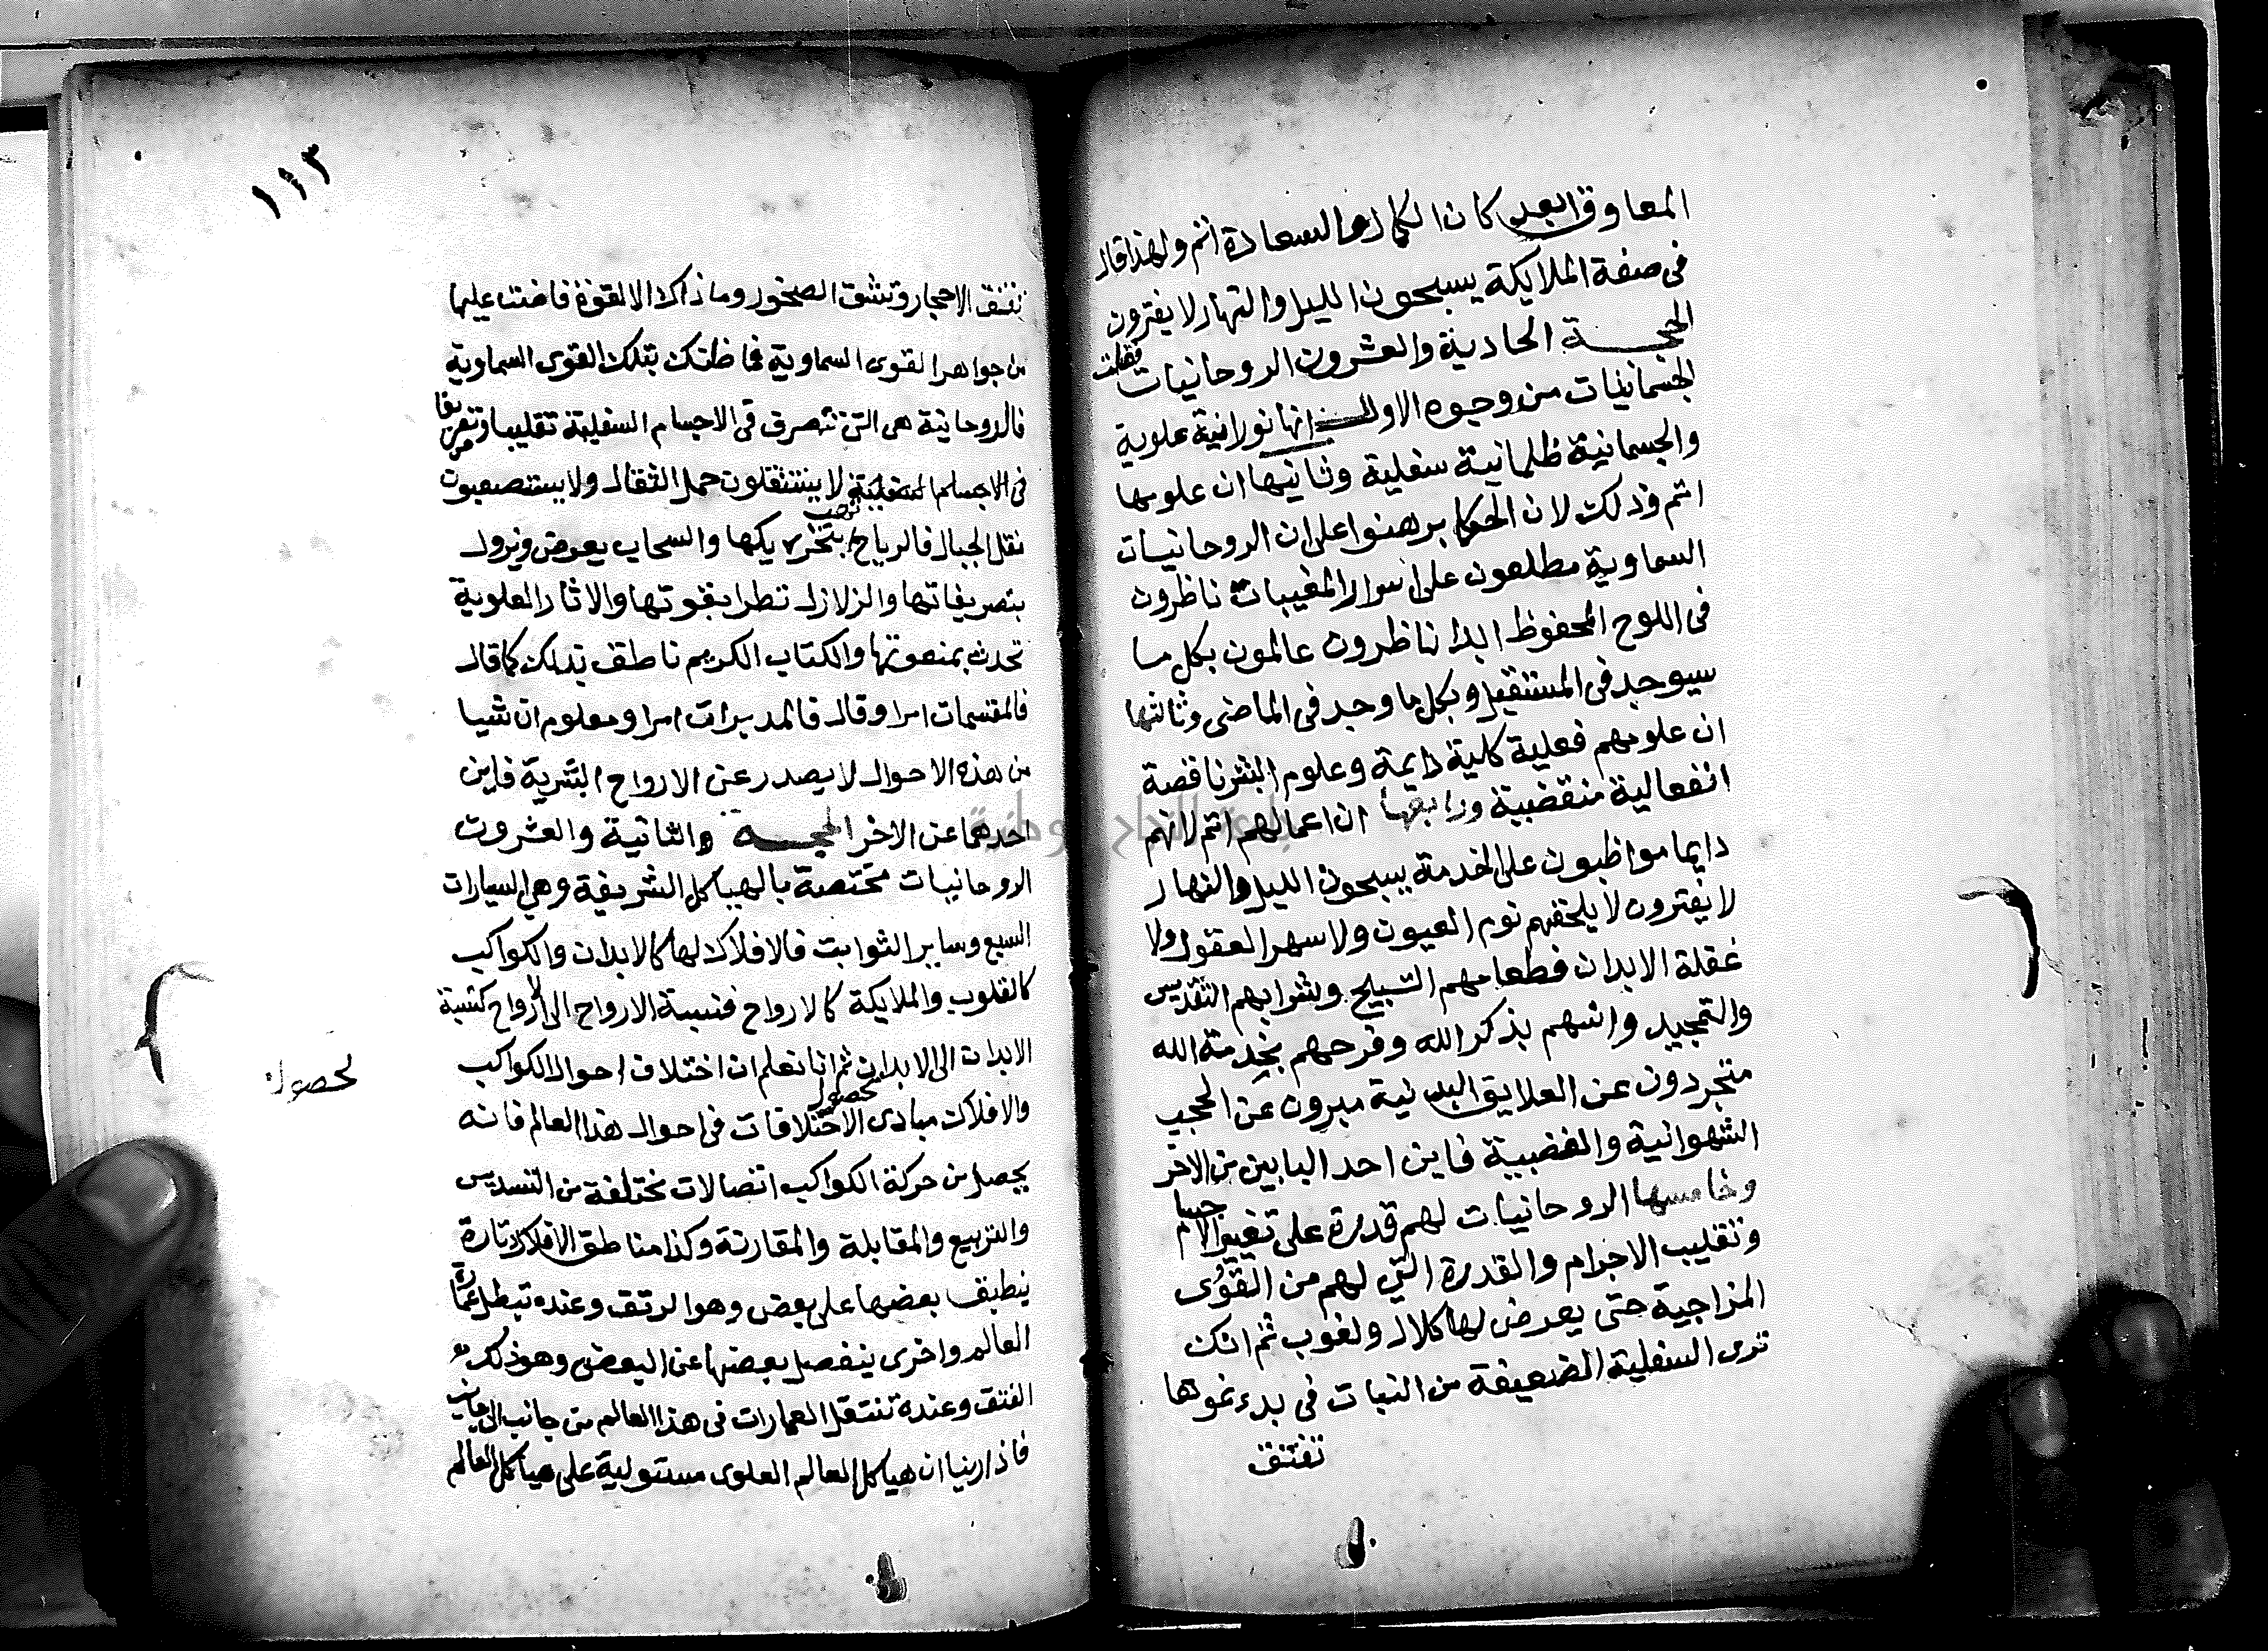 المعاوق ابعد كان الكمال والسعادة اتم ولهذا قال
فى صفة الملايكة يسبحون الليل والنهار لا يفترون
الحجـــة الحادية والعشرون الروحانيات فضلت
الجسمانيات من وجوه الاول انها نورانية علوية
والجسمانية ظلمانية سفلية وثانيها ان علومها
اتم وذلك لان الحكما برهنوا على ان الروحانيات
السماوية مطلعون على اسرار المغيبات ناظرون
فى اللوح المحفوظ ابدا ناظرون عالمون بكل ما
سيوجد فى المستقبل وبكل ما وجد فى الماضى وثالثها
ان علومهم فعلية كلية دايمة وعلوم البشر ناقصة
انفعالية منقضية ورابعها ان اعمالهم اتم لانهم
دايما مواظبون على الخدمة يسبحون الليل والنهار
لا يفترون لا يلحقهم نوم العيون ولا سهر العقول ولا
غفلة الابدان فطعامهم التسبيح وشرابهم التقديس
والتمجيد وانسهم بذكر الله وفرحهم بخدمة الله
متجردون عن العلايق البدنية مبرون عن الحجب
الشهوانية والغضبية فاين احد البابين من الاخر
وخامسها الروحانيات لهم قدرة على تغيير الاجسام
وتقليب الاجرام والقدرة التى لهم من القوى
المزاجية حتى يعرض لها كلال ولغوب ثم انك
ترى السفلية الضعيفة من النبات فى بدء نموها
تفتق
١١٣
تفتق الاحجار وتشق الصخور وما ذاك الا لقوة فاضت عليها
من جواهر القوى السماوية فما ظنك بتلك القوى السماوية
فالروحانية هى التى تتصرف فى الاجسام السفلية تقليبا وتصريفا
فى الاجسام السفلية لا يستثقلون حمل الثقال ولا يستصعبون
نقل الجبال فالرياح تهب بتحريكها والسحاب يعرض ويزول
بتصريفاتها والزلازل تطرا بقوتها والاثار العلوية
تحدث بمنعوتها والكتاب الكريم ناطق بذلك كما قال
فالمقسمات امرا وقال فالمدبرات امرا ومعلوم ان شيا
من هذه الاحوال لا يصدر عن الارواح البشرية فاين
احدهما عن الاخر الحجـــة والثانية والعشرون
الروحانيات مختصة بالهياكل الشريفة وهى السيارات
السبع وساير الثوابت فالافلاك لها كالابدان والكواكب
كالقلوب والملايكة كالارواح فنسبة الارواح الى الارواح كنسبة
الابدان الى الابدان ثم انا نعلم ان اختلاف احوال الكواكب
والافلاك مبادى لحصول الاختلافات فى احوال هذا العالم فانه
لحصول
يحصل من حركة الكواكب اتصالات مختلفة من التسديس
والتربيع والمقابلة والمقارنة وكذا مناطق الافلاك تارة
ينطبق بعضها على بعض وهو الرتق وعنده تبطل عمارة
العالم واخرى ينفصل بعضها عن البعض وهو ذلك هو
الفتق وعنده تنتقل العمارات فى هذا العالم من جانب الى جانب
فاذا راينا ان هياكل العالم العلوى مستولية على هياكل العالم